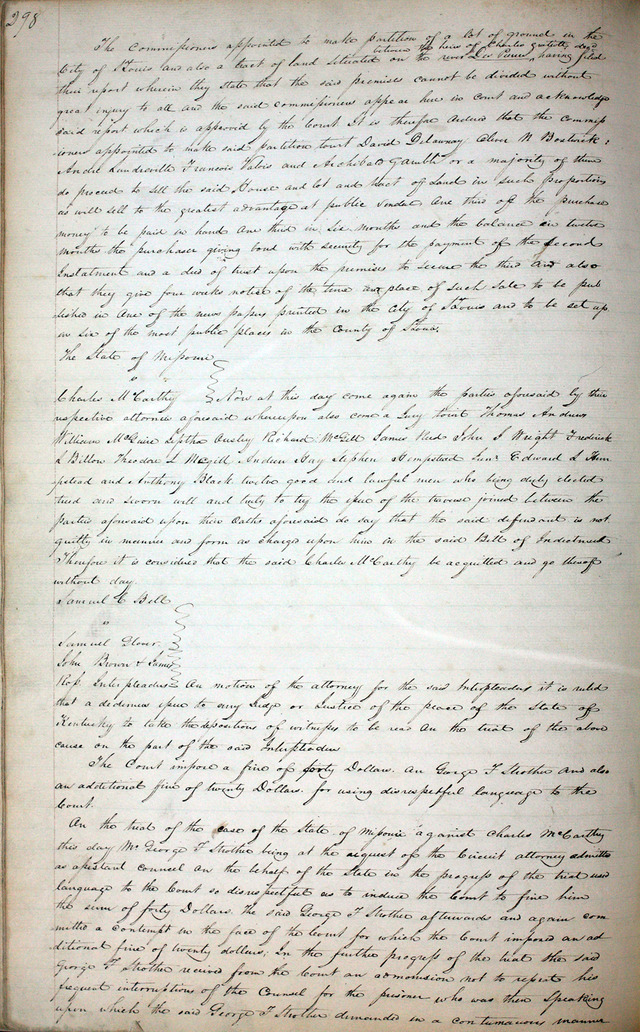 298
The commissioners appointed to make partition of a lot of ground in the
between the heirs of Charles Gratiotts decd
City of St Louis and also a tract of land situated on the river Des Peres, having filed
their report wherein they state that the said premises cannot be divided without
great injury to all and the said commissioners appear here in court and acknowledge
said report which is approved by the Court It is therefore ordered that the commiss
ioners appointed to make said partition towit David Delaunay Oliver N Bostwick
André Landreville Francois Valois and Archibald Gamble or a majority of them
do proceed to sell the said House and lot and tract of Land in such proportions
as will sell to the greatest advantage at public vendue One third of the purchase
money to be paid in hand One third in Six months and the balance in twelve
months the purchaser giving bond with security for the payment of the second
Instalment and a deed of trust upon the premises to secure the third and also
that they give four weeks notice of the time and place of such Sale to be pub
lished in one of the news papers printed in the City of St Louis and to be set up
in Six of the most public places in the County of St Louis.
The State of Missouri
"
Charles McCarthy Now at this day come again the parties aforesaid by their
respective attornies aforesaid whereupon also come a Jury towit Thomas Andrews
William McGuire Leptha Ousley Richard McGill James Reed John S Wright Frederick
L Billon Theodore L McGill Andrew Hay Stephen Hempstead Junr Edward L Hem
pstead and Anthony Black twelve good and lawful men who being duly elected
tried and sworn will and truly to try the issue of the traverse joined between the
Parties aforesaid upon their Oaths aforesaid do say that the said defendant is not
guilty in manner and form as charged upon him in the said Bill of Indictment
Therefore it is considered that the said Charles McCarthy be acquitted and go thereof
without day.
Samuel C Bell
"
Samuel Glover
John Brown & James
Interpleaders On motion of the attorney for the said Interpleaders it is ruled
that a dedimus issue to any Judge or Justice of the peace of the State of
Kentucky to take the depositions of witnesses to be read on the trial of the above
cause on the part of the said Interpleader
The Court impose a fine of forty Dollars. On George F Strother and also
an additional fine of twenty Dollars. for using disrespectful language to the
Court.
On the trial of the case of the State of Missouri against Charles McCarthy
this day Mr George F Strother being at the request of the Circuit attorney admitted
as assistant counsel on the behalf of the State in the progress of the trial used
language to the Court so disrespectful as to induce the Court to fine him
the sum of forty Dollars. The said George F Strother afterwards and again com
mitted a contempt in the face of the Court for which the Court imposed an ad
ditional fine of twenty dollars. In the further progress of the trial the said
George F Strother received from the Court an admonision not to repeat his
frequent interruptions of the Counsel for the prisoner who was then speaking
upon which the said George F Strother demanded in a contumeious manner